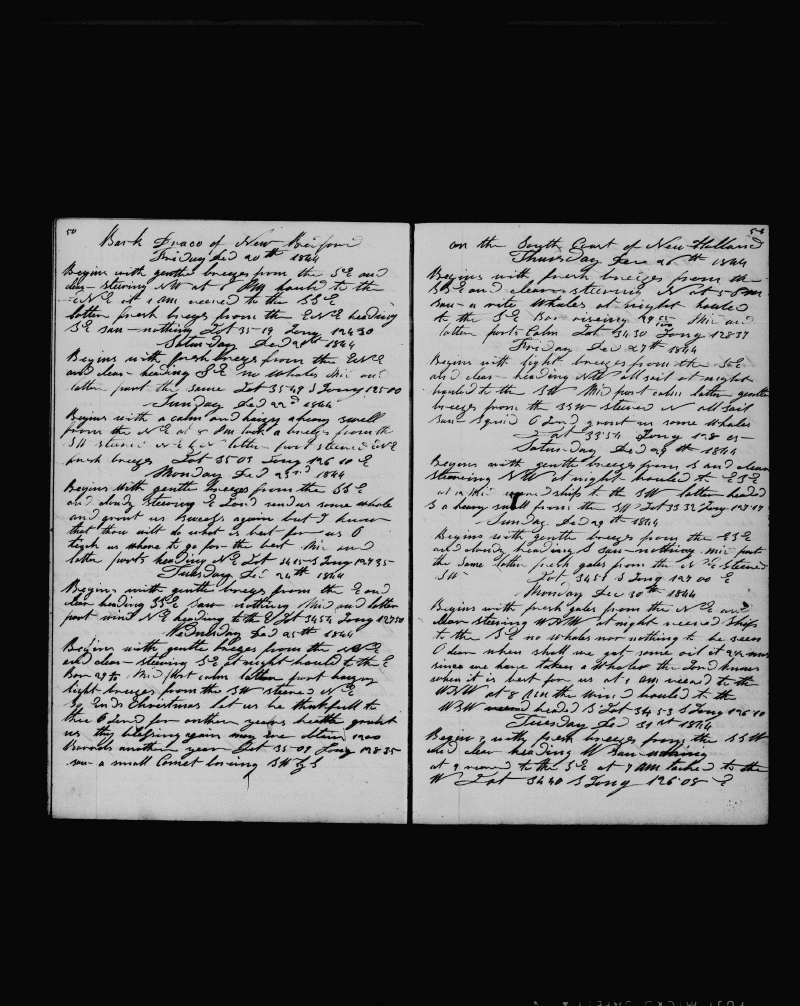 50
Bark Draco of New Bedford
Friday Dec 20th 1844
Begins with gentle breezes from the SE and
clear steering NW at 6 PM hauld to the
NE at 1 AM veered to the SSE
latter fresh breezes from the ENE heading
SE saw nothing Lat 35-19 Long 124 30
Saturday Dec 21st 1844
Begins with fresh breezes from the ENE
and clear heading SE no whales Mid and
latter part the same Lat 35-49 S Long 125 00
Sunday Dec 22d 1844
Begins with a calm and heavy swell
from the NE at 8 PM took a breeze from the
SW steered NE by N latter part steered ENE
fresh breezes Lat 35-03 Long 126 10 E
Monday Dec 23rd 1844
Begins with gentle breezes from the SSE
and cloudy steering E Lord send us some whale
and grant us success again but I know
that thou wilt do what is best for us O
teach us where to go for the best Mid and
latter parts heading NE Lat 34 15 S Long 127 35
Tuesday Dec 24th 1844
Begins with gentle breezes from the E and
clear heading SSE saw nothing Mid and latter
part wind NE heading to the E Lat 34 54 Long 127 50
Wednesday Dec 25th 1844
Begins with gentle breezes from the NNE
and clear steering SE at night hauld to the E
Bar 29 Mid part calm latter part
light breezes from the SW steered NE
So Ends Christmas let us be thankfull to
thee O Lord for another years health grant
us thy blessing again may we obtain 1200
Barrels another year Lat 35-09 Long 128 35
saw a small Comet bearing SW by S
on the South Coast of New Holland
Thursday Dec 26th 1844
Begins with fresh breezes from the
and clear steering N at 5 PM
saw a rite Whale at night hauled
to the SE Bar riseing 29 Mid and
latter parts Calm Lat 34 30 Long 128 37
Friday Dec 27th 1844
Begins with light breezes from the
and clear heading all sail at night
hauled to the SW Mid part calm latter gentle
breezes from the SSW steered N all sail
saw Squid O Lord grant us some Whales
Lat 33 54 Long 128 05
Saturday Dec 28th 1844
Begins with gentle breezes from S and clear
steering NW at night hauled to ESE
at ship to the SW latter headed
S a heavy swell from the SW Lat 33 32 Long 127 17
Sunday Dec 29th 1844
Begins with gentle breezes from the ESE
and cloudy heading S saw nothing mid part
the same latter fresh gales from the NE steered
SW Lat 34 51 S Long 127 00 E
Monday Dec 30th 1844
Begins with fresh gales from the NE and
clear steering WNW at night veered Ship
to the SE no whales nor nothing to be seen
O dear when shall we get some oil
since we have taken a Whale the Lord knows
when it is best for us at 1 AM veered to the
WNW at 8 AM the Wind hauled to the
headed S Lat 34 53 S Long 126 10
Tuesday Dec 31st 1844
Begins with fresh breezes from the SSW
and clear heading W saw nothing
at 9 veered to the SE at 7 AM tacked to the
W Lat 34 40 S Long 126 08 E